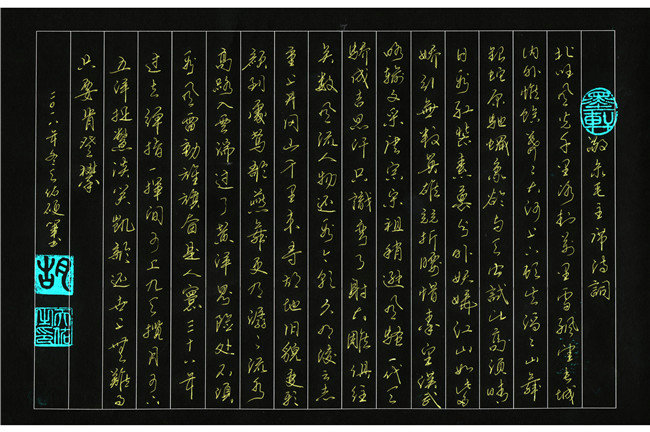 墨軒
敬录毛主席诗词
北国风光千里冰封万里雪飘望长城
内外惟馀莽々大河上下顿失滔々山舞
银蛇原驰蠟象欲与天公试比高须晴
日看红装素裹分外妖娆江山如此多
娇引无数英雄竞折腰惜秦皇汉武
略输文采唐宗宋祖稍逊风骚一代天
骄成吉思汗只識弯弓射大雕俱往
矣数风流人物还看今朝久有凌云志
重上井冈山千里来寻故地旧貌变新
颜到处莺歌燕舞更有潺々流水
高路入云端过了黄洋界险处不须
看风雷动旌旗奋是人寰三十八年
过去弹指一挥间可上九天揽月可下
五洋捉鳖谈笑凯歌还世上无难事
只要肯登攀
二〇一八年冬天佑硬笔书
胡
天佑之印